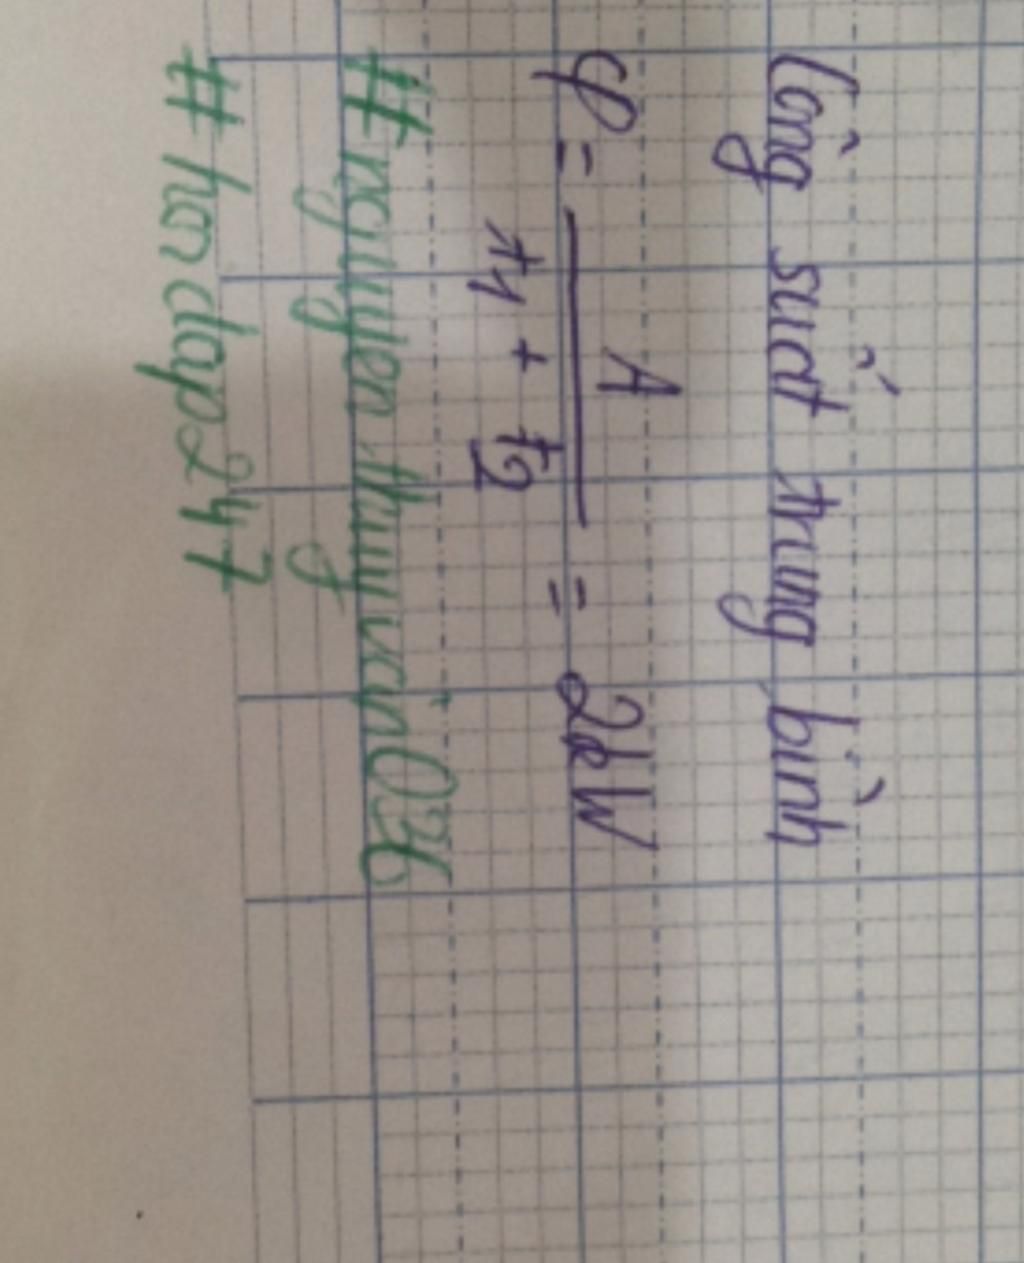 Công suất trung bình
P = A / t1 + t2 = 2kW
#nguyenthuyvan036
#hoidap247